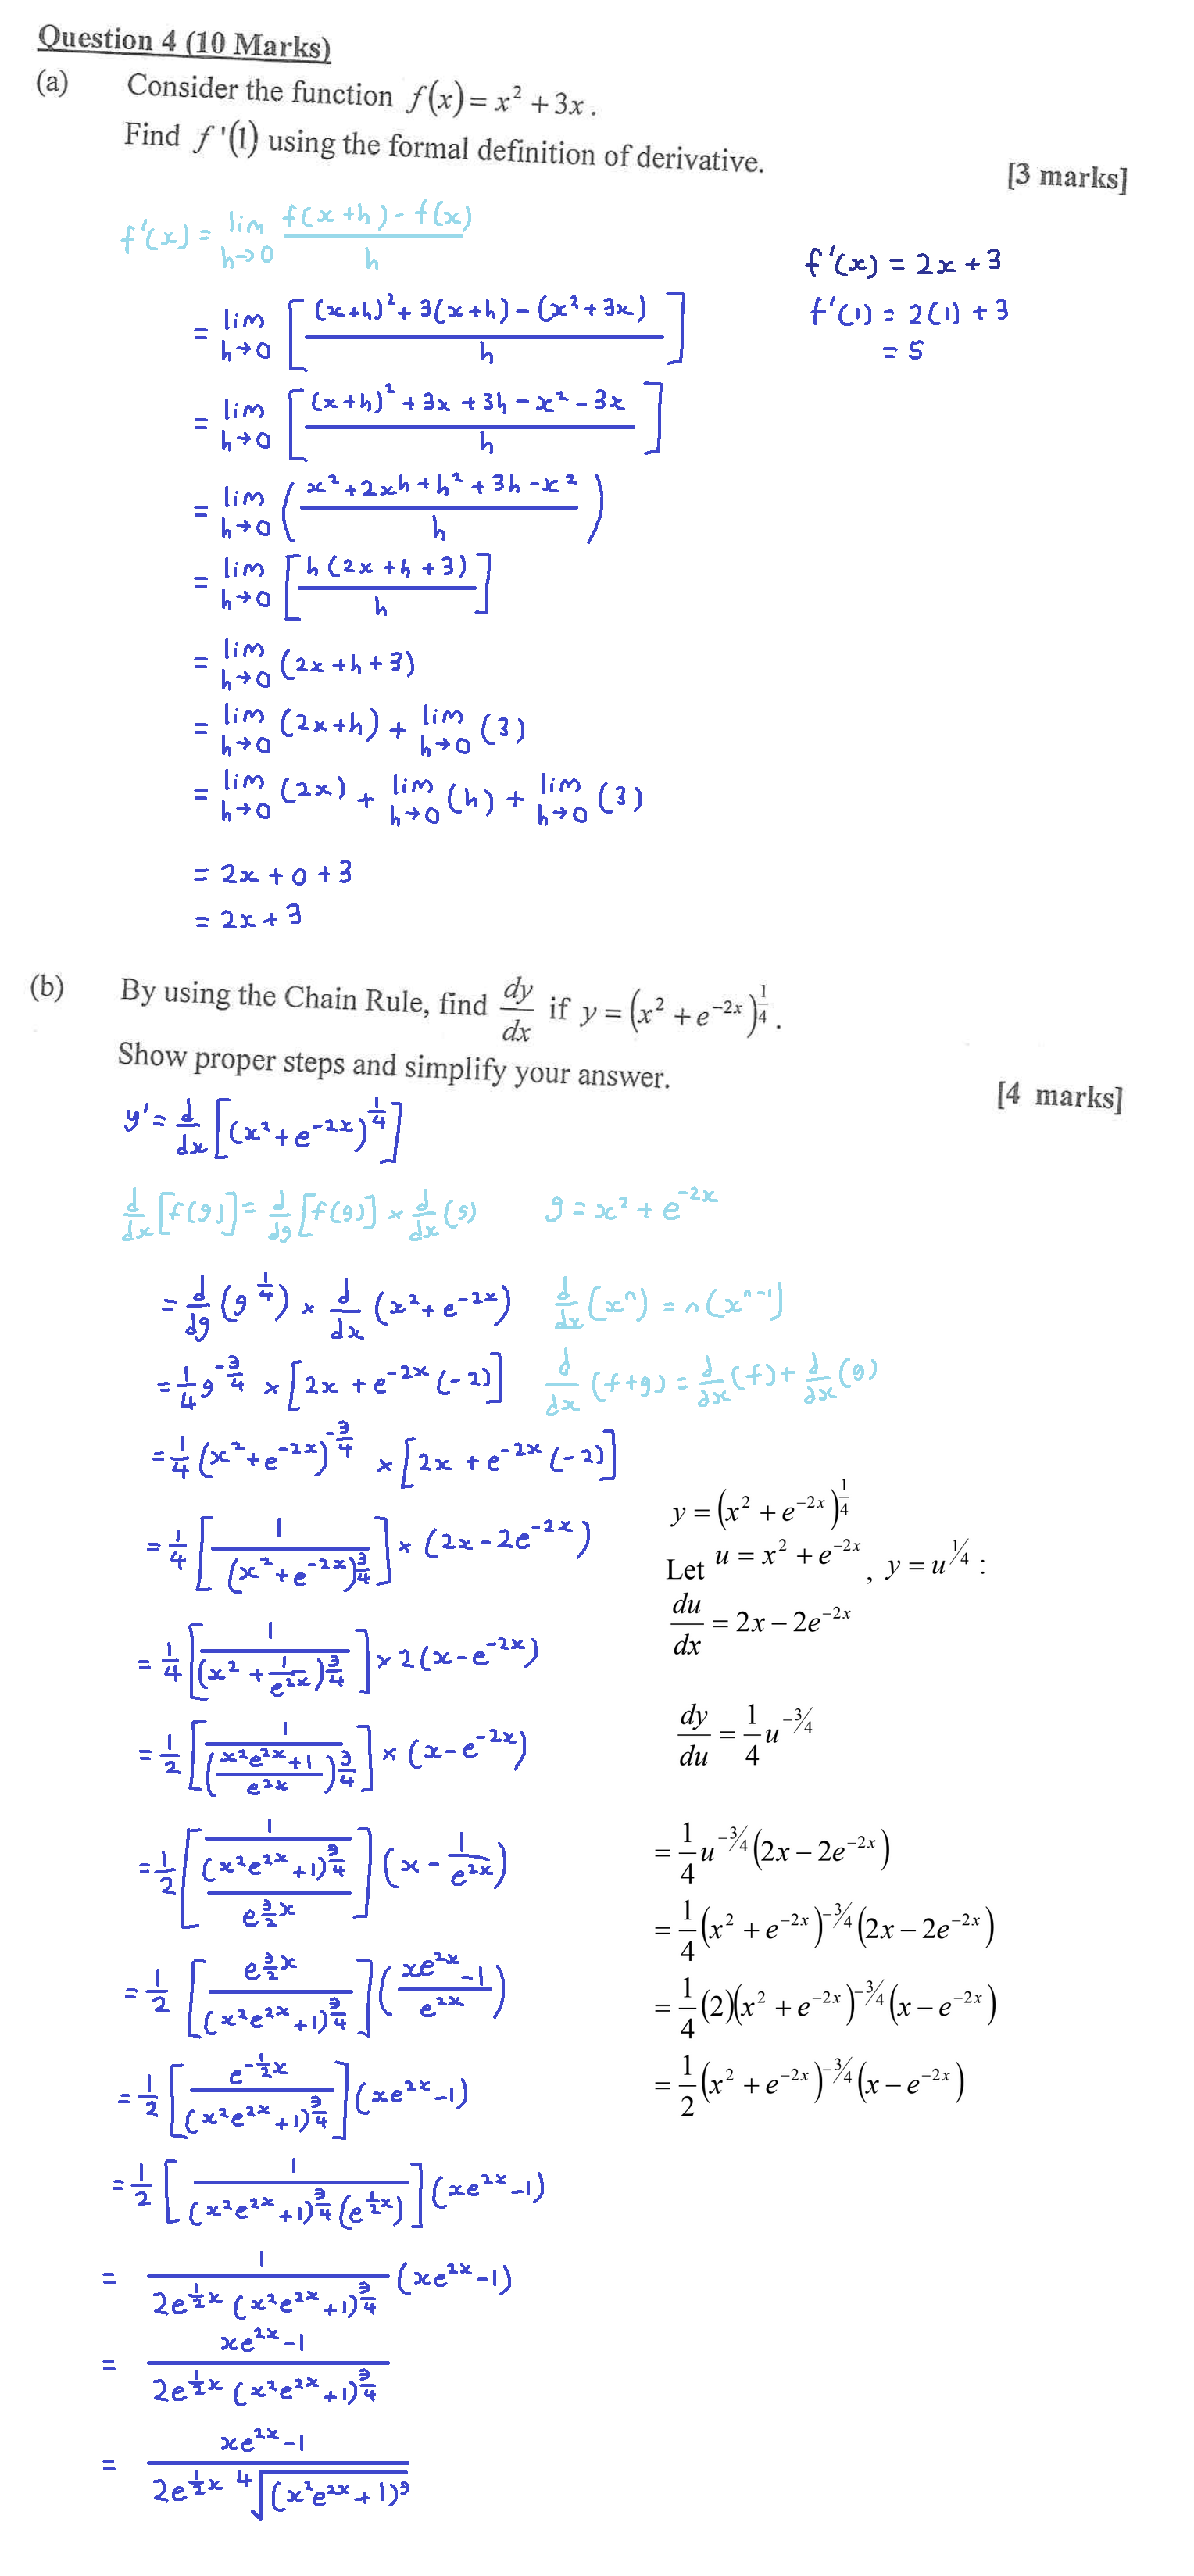 Question 4 (10 Marks)
(a) Consider the function f(x) = x² + 3x .
Find f '(1) using the formal definition of derivative.
[3 marks]
f'(x) = lim h→0 (f(x+h) - f(x))/h
= lim h→0 [((x+h)² + 3(x+h) - (x² + 3x))/h]
= lim h→0 [((x+h)² + 3x + 3h - x² - 3x)/h]
= lim h→0 ((x² + 2xh + h² + 3h - x²)/h)
= lim h→0 [h(2x + h + 3)/h]
= lim h→0 (2x + h + 3)
= lim h→0 (2x+h) + lim h→0 (3)
= lim h→0 (2x) + lim h→0 (h) + lim h→0 (3)
= 2x + 0 + 3
= 2x + 3
f'(x) = 2x + 3
f'(1) = 2(1) + 3
= 5
(b) By using the Chain Rule, find dy/dx if y = (x² + e^(-2x))^(1/4) .
Show proper steps and simplify your answer.
[4 marks]
y' = d/dx [(x² + e^(-2x))^(1/4)]
d/dx [f(g)] = d/dg [f(g)] × d/dx (g) g = x² + e^(-2x)
= d/dg (g^(1/4)) × d/dx (x² + e^(-2x)) d/dx (x^n) = n(x^(n-1))
= 1/4 g^(-3/4) × [2x + e^(-2x) (-2)] d/dx (f+g) = d/dx (f) + d/dx (g)
= 1/4 (x² + e^(-2x))^(-3/4) × [2x + e^(-2x) (-2)]
= 1/4 [1/(x² + e^(-2x))^(3/4)] × (2x - 2e^(-2x))
= 1/4 [1/(x² + 1/e^(2x))^(3/4)] × 2(x - e^(-2x))
= 1/2 [1/((x²e^(2x) + 1)/e^(2x))^(3/4)] × (x - e^(-2x))
= 1/2 [1/((x²e^(2x) + 1)^(3/4)/e^(3/2 x))] (x - 1/e^(2x))
= 1/2 [e^(3/2 x)/(x²e^(2x) + 1)^(3/4)] ((xe^(2x) - 1)/e^(2x))
= 1/2 [e^(-1/2 x)/(x²e^(2x) + 1)^(3/4)] (xe^(2x) - 1)
= 1/2 [1/((x²e^(2x) + 1)^(3/4) (e^(1/2 x)))] (xe^(2x) - 1)
= 1/(2e^(1/2 x) (x²e^(2x) + 1)^(3/4)) (xe^(2x) - 1)
= (xe^(2x) - 1)/(2e^(1/2 x) (x²e^(2x) + 1)^(3/4))
= (xe^(2x) - 1)/(2e^(1/2 x) ⁴√((x²e^(2x) + 1)³))
y = (x² + e^(-2x))^(1/4)
Let u = x² + e^(-2x) , y = u^(1/4) :
du/dx = 2x - 2e^(-2x)
dy/du = 1/4 u^(-3/4)
= 1/4 u^(-3/4) (2x - 2e^(-2x))
= 1/4 (x² + e^(-2x))^(-3/4) (2x - 2e^(-2x))
= 1/4 (2)(x² + e^(-2x))^(-3/4) (x - e^(-2x))
= 1/2 (x² + e^(-2x))^(-3/4) (x - e^(-2x))